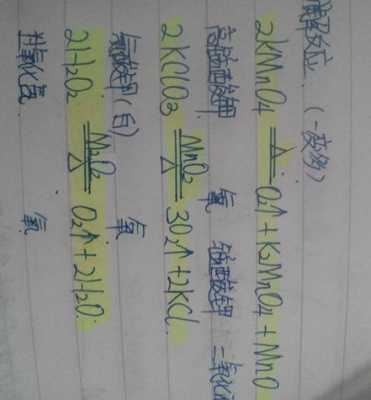 解反应 (一变多)
2KMnO4 =△= O2↑+K2MnO4+MnO
高锰酸钾 氧 锰酸钾 二氧化
2KClO3 =MnO2/△= 3O2↑+2KCl.
氯酸钾(白) 氧
2H2O2 =MnO2/△= O2↑+2H2O
氧化氢 氧